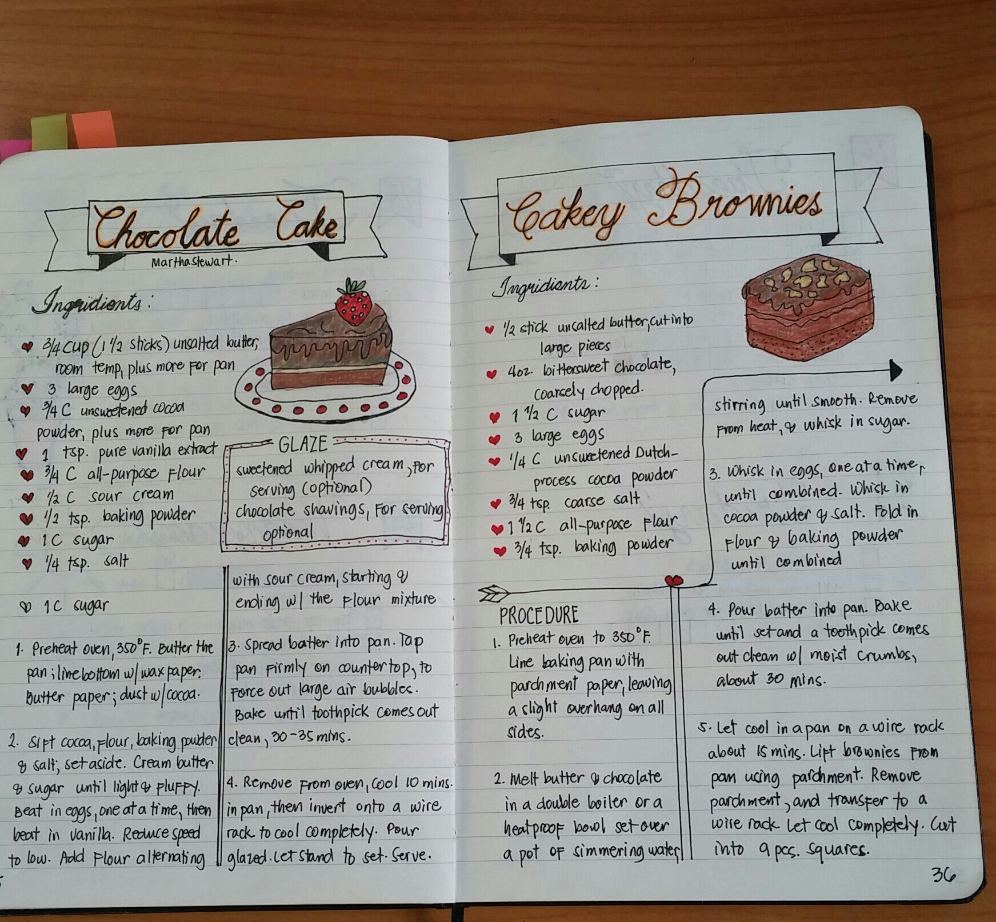 Chocolate Cake
MarthaStewart.
Ingridients:
3/4 cup (1 1/2 sticks) unsalted butter,
room temp, plus more for pan
3 large eggs
3/4 C unsweetened cocoa
powder, plus more for pan
1 tsp. pure vanilla extract
3/4 C all-purpose flour
1/2 C sour cream
1/2 tsp. baking powder
1 C sugar
1/4 tsp. salt
1 C sugar
GLAZE
sweetened whipped cream, for
serving (optional)
chocolate shavings, for serving
optional
1. Preheat oven, 350°F. Butter the
pan; line bottom w/ wax paper.
Butter paper; dust w/ cocoa.
2. Sift cocoa, flour, baking powder
& salt; set aside. Cream butter
& sugar until light & fluffy.
Beat in eggs, one at a time, then
beat in vanilla. Reduce speed
to low. Add flour alternating
with sour cream, starting &
ending w/ the flour mixture
3. Spread batter into pan. Tap
pan firmly on countertop, to
force out large air bubbles.
Bake until toothpick comes out
clean, 30-35 mins.
4. Remove from oven, cool 10 mins.
in pan, then invert onto a wire
rack to cool completely. Pour
glazed. Let stand to set. Serve.
Cakey Brownies
Ingridients:
1/2 stick unsalted butter, cut into
large pieces
4oz. bittersweet chocolate,
coarsely chopped.
1 1/2 C sugar
3 large eggs
1/4 C unsweetened Dutch-
process cocoa powder
3/4 tsp. coarse salt
1 1/2 C all-purpose flour
3/4 tsp. baking powder
PROCEDURE
1. Preheat oven to 350°F.
Line baking pan with
parchment paper, leaving
a slight overhang on all
sides.
2. Melt butter & chocolate
in a double boiler or a
heatproof bowl set over
a pot of simmering water,
stirring until smooth. Remove
from heat, & whisk in sugar.
3. Whisk in eggs, one at a time,
until combined. Whisk in
cocoa powder & salt. Fold in
flour & baking powder
until combined
4. Pour batter into pan. Bake
until set and a toothpick comes
out clean w/ moist crumbs,
about 30 mins.
5. Let cool in a pan on a wire rack
about 15 mins. Lift brownies from
pan using parchment. Remove
parchment, and transfer to a
wire rack. Let cool completely. Cut
into 9 pcs. squares.
36